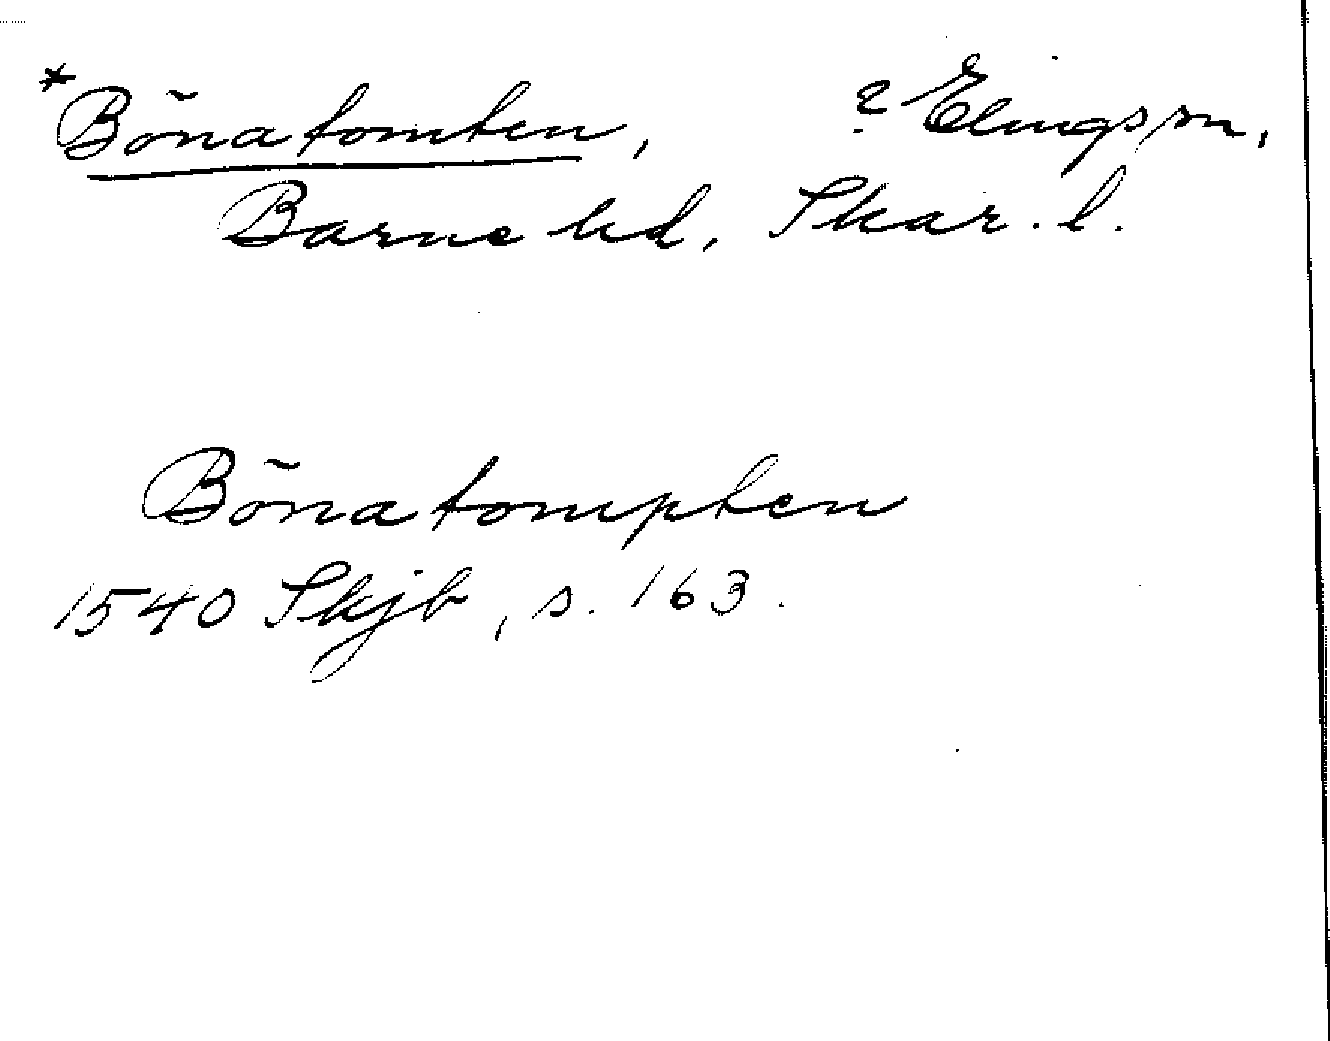 *Bönatomten, ? Elings sn,
Barne hd, Skar. l.
Bönatompten
1540 Skjb, s. 163.